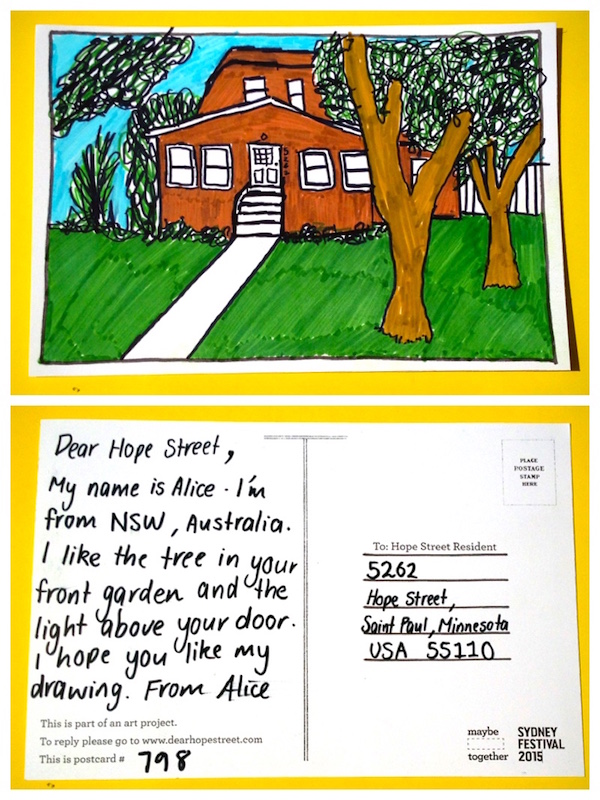 5262
Dear Hope Street,
My name is Alice. I'm
from NSW, Australia.
I like the tree in your
front garden and the
light above your door.
I hope you like my
drawing. From Alice
This is part of an art project.
To reply please go to www.dearhopestreet.com
This is postcard # 798
PLACE
POSTAGE
STAMP
HERE
To: Hope Street Resident
5262
Hope Street,
Saint Paul, Minnesota
USA 55110
maybe
together
SYDNEY
FESTIVAL
2015